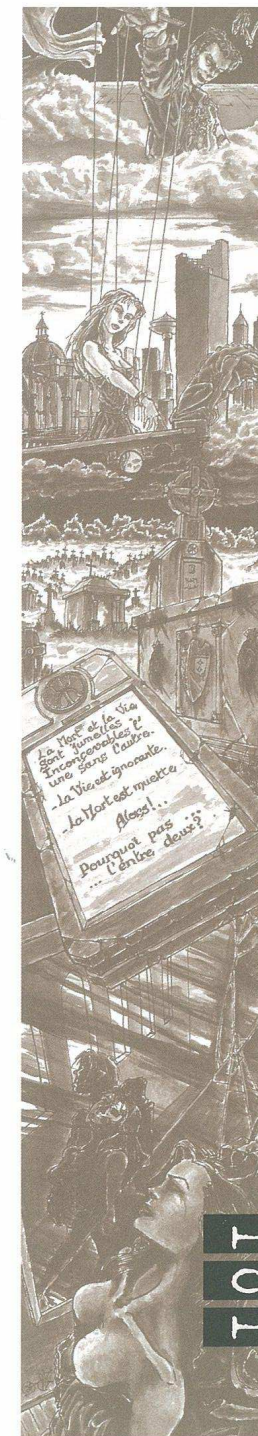 La Mort et la Vie
sont jumelles
Inconcevables l'
une sans l'autre.
-La Vie est ignorante.
-La Mort est muette
Alors!..
Pourquoi pas ..
... l'entre deux?
TOT